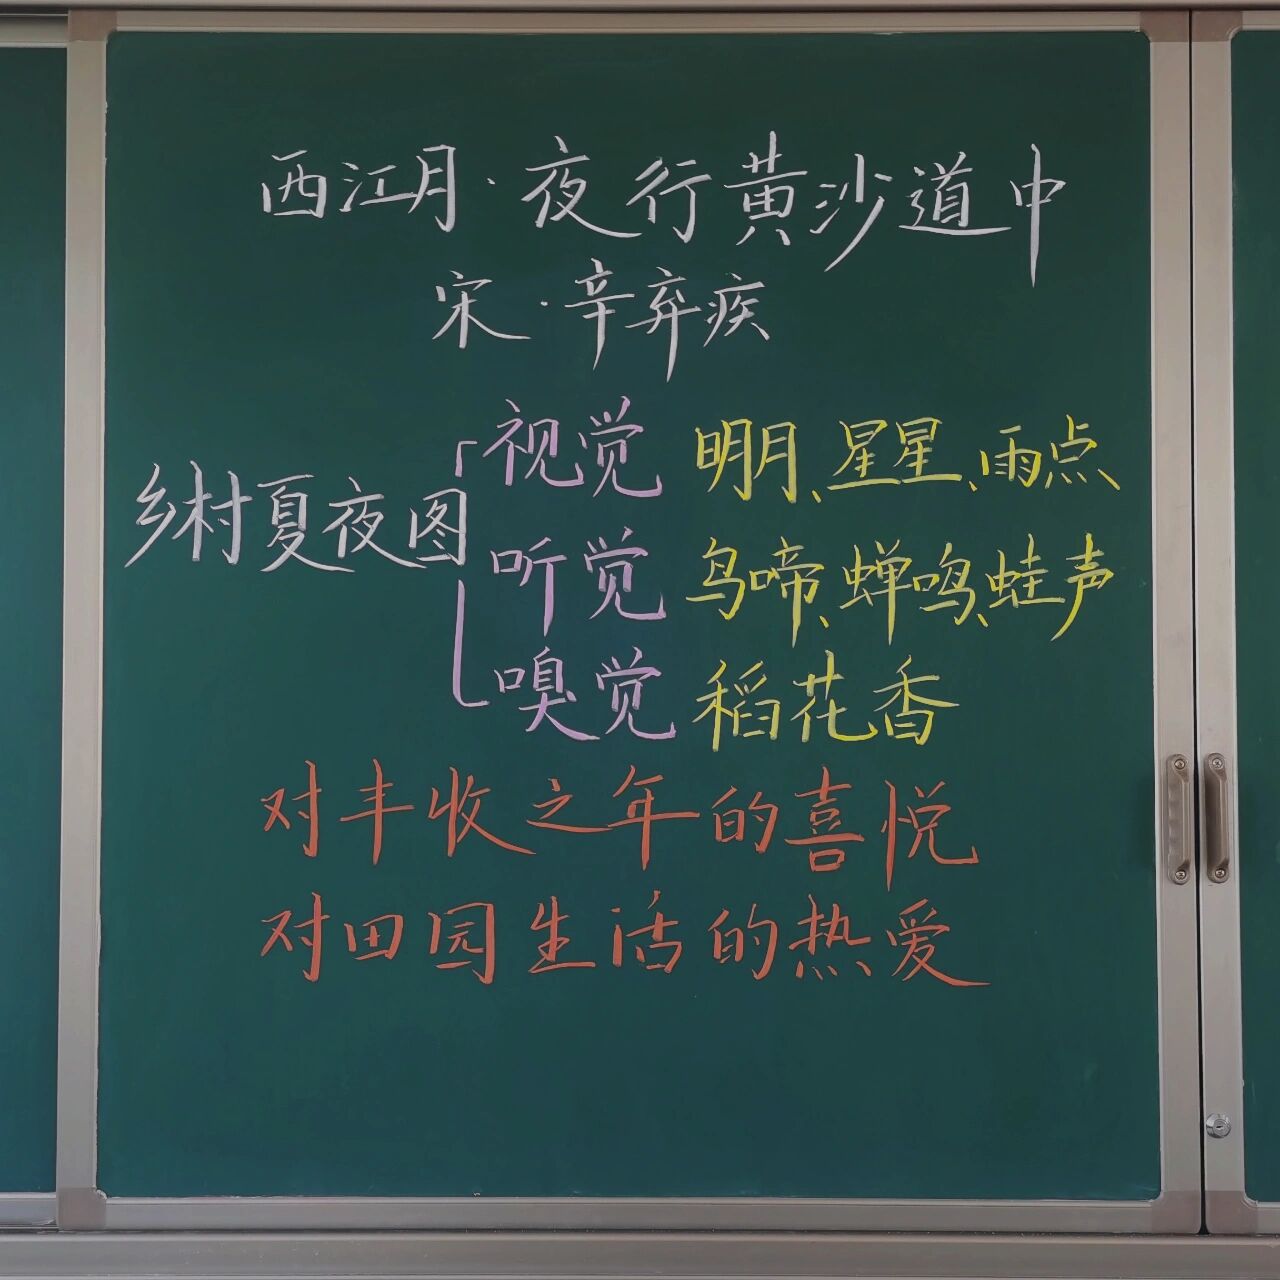 西江月·夜行黄沙道中
宋·辛弃疾
乡村夏夜图
视觉 明月、星星、雨点
听觉 鸟啼、蝉鸣、蛙声
嗅觉 稻花香
对丰收之年的喜悦
对田园生活的热爱